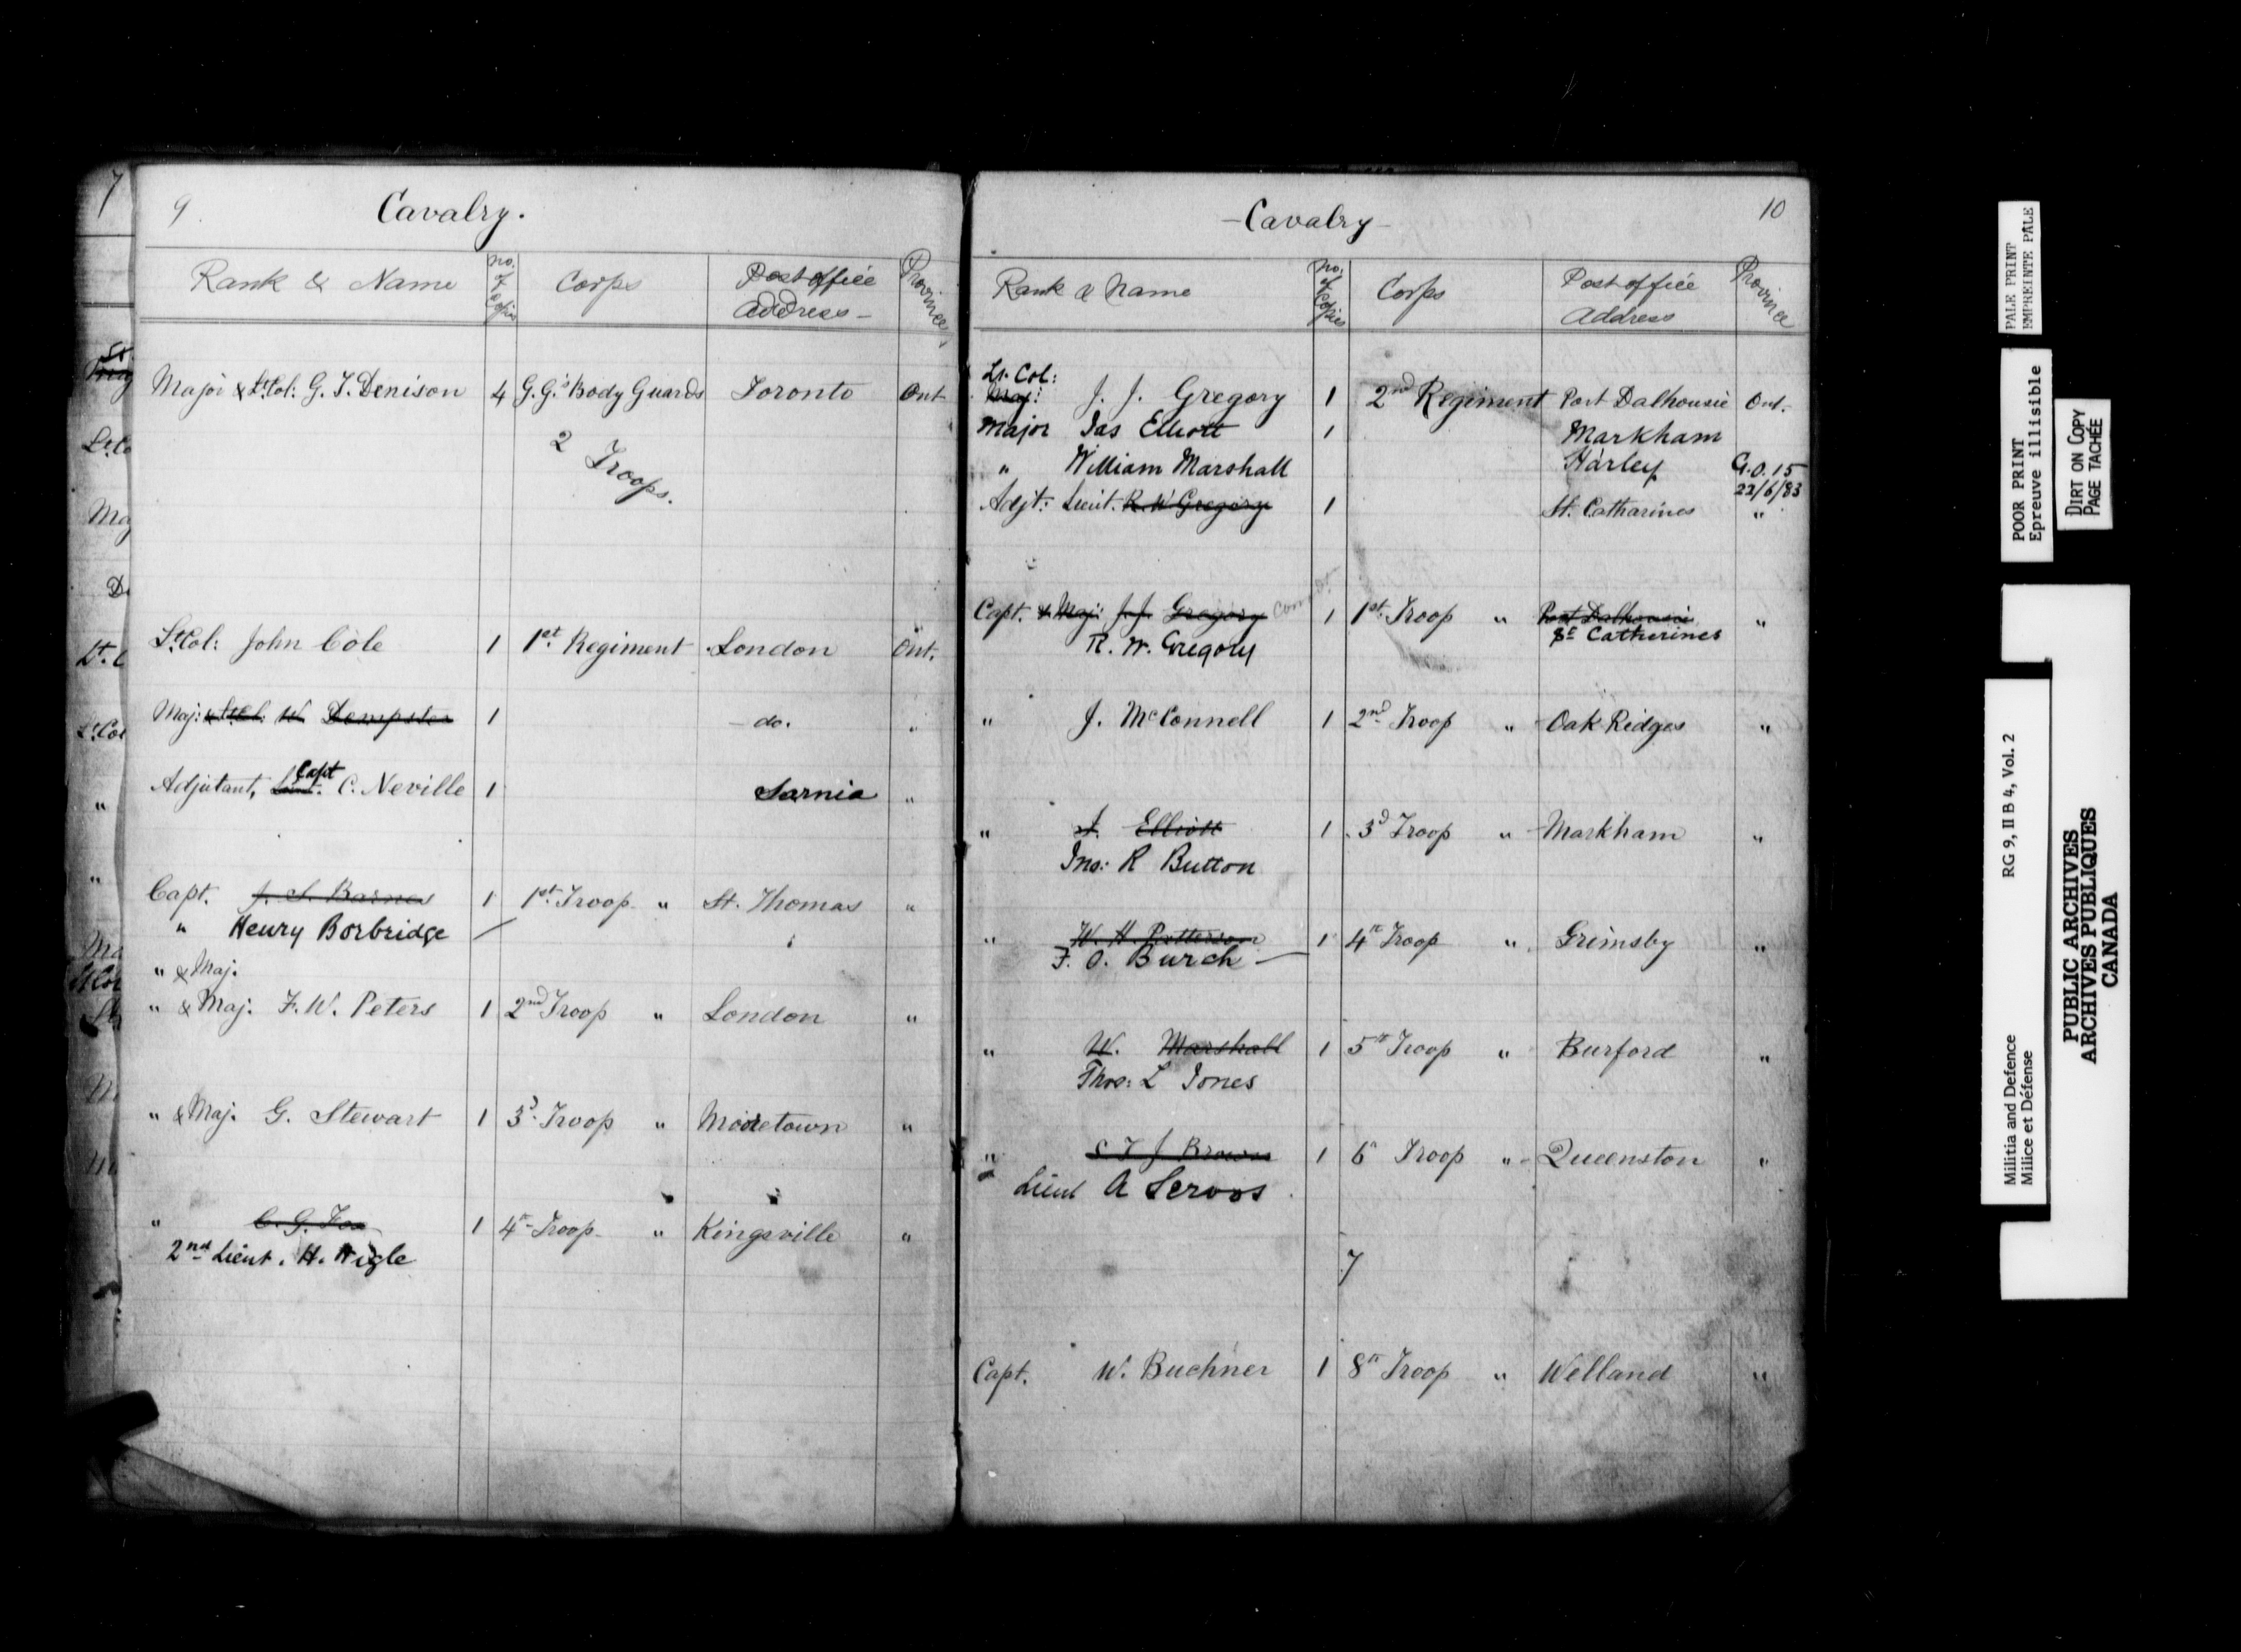 7
9.
Cavalry.
Rank & Name
No. of Copies
Corps
Post office Address
Province
Major & Lt. Col: G. T. Denison 4 G. G.'s Body Guards Toronto Ont
2 Troops.
Lt. Col: John Cole 1 1st Regiment London Ont.
Maj: & Lt. Col. W. Dempster 1 do. "
Adjutant, Lieut. Capt C. Neville 1 Sarnia "
Capt. Barnes 1 1st Troop " St. Thomas "
" Henry Borbridge
" & Maj.
" & Maj. F. W. Peters 1 2nd Troop " London "
" & Maj. G. Stewart 1 3d Troop " Mooretown "
" C. G. Fox 1 4th Troop " Kingsville "
2nd Lieut. H. Wigle
- Cavalry -
10
Rank & Name
No. of Copies
Corps
Post office Address
Province
Lt. Col:
Maj: J. J. Gregory 1 2nd Regiment Port Dalhousie Ont.
Major Jas Elliott 1 Markham
" William Marshall Harley G.O. 15
22/6/83
Adjt: Lieut. R. W Gregory 1 St. Catharines "
Capt. & Maj: J. J. Gregory 1 1st Troop " Port Dalhousie "
R. W. Gregory St Catherines
" J. McConnell 1 2nd Troop " Oak Ridges "
" J. Elliott 1 3d Troop " Markham "
Jno: R Button
" W. H. Patterson 1 4th Troop " Grimsby "
F. O. Burch
" W. Marshall 1 5th Troop " Burford "
Thos: L Jones
" Brown 1 6th Troop " Queenston "
Lieut A Servos
7
Capt. W. Buchner 1 8th Troop " Welland "
PALE PRINT
EMPREINTE PALE
POOR PRINT
Epreuve illisible
DIRT ON COPY
PAGE TACHÉE
Militia and Defence RG 9, II B 4, Vol. 2
Milice et Défense
PUBLIC ARCHIVES
ARCHIVES PUBLIQUES
CANADA